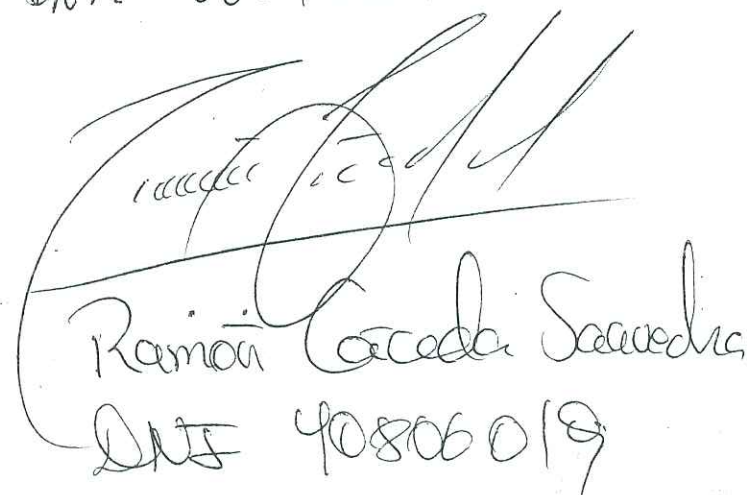 Ramón Caceda Saavedra
DNI 40806019